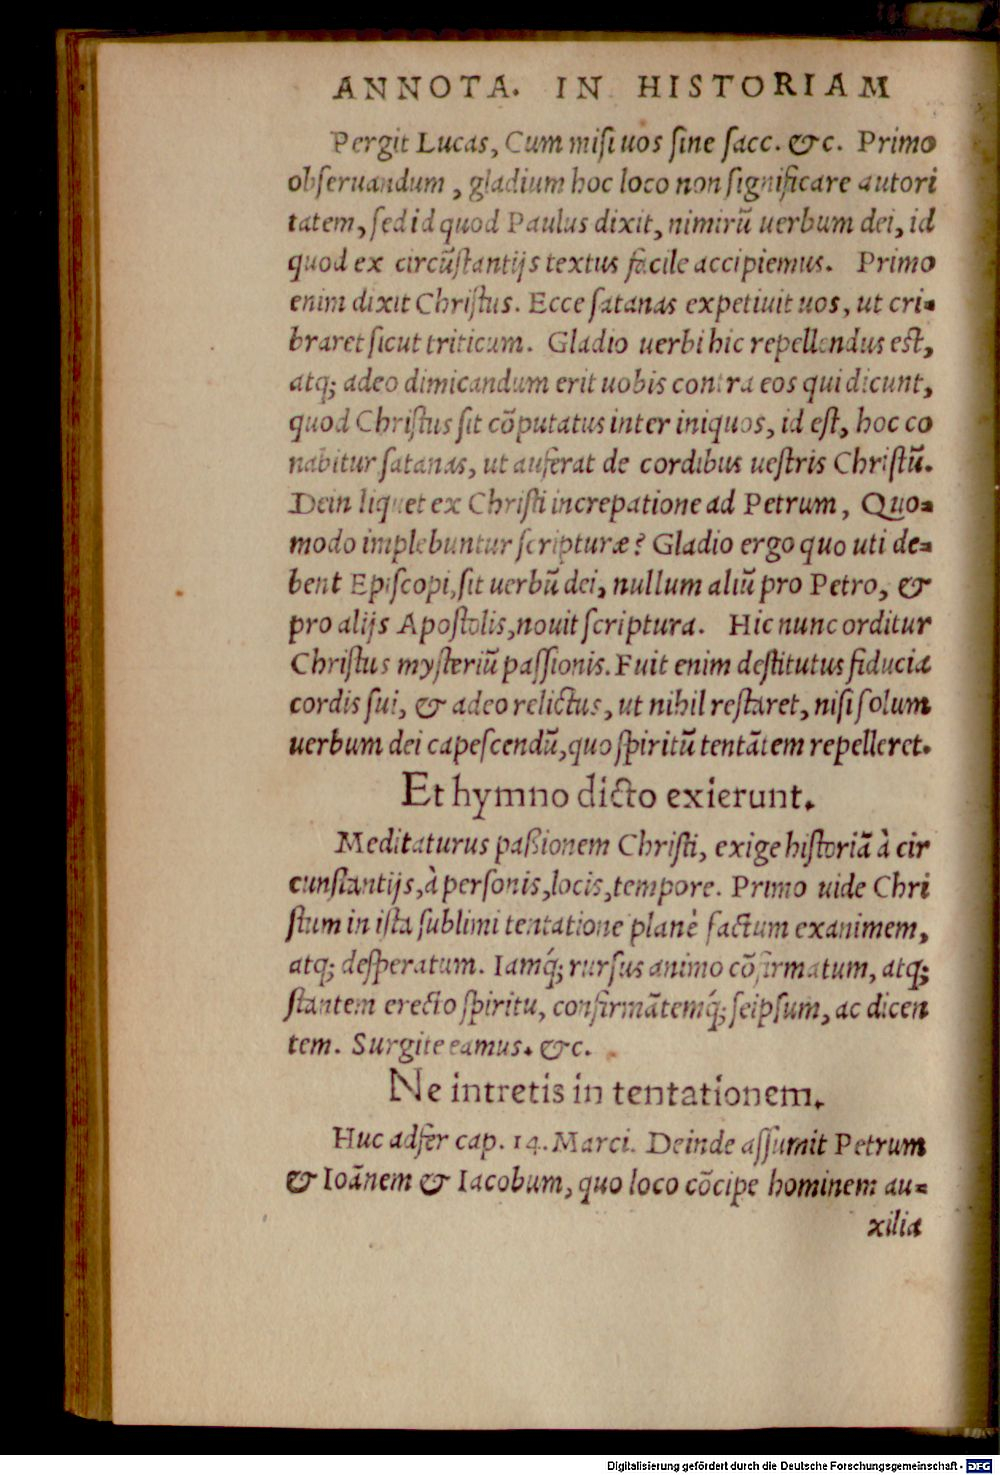 ANNOTA. IN HISTORIAM
Pergit Lucas, Cum misi uos sine sacc. &c. Primo
obseruandum, gladium hoc loco non significare autori
tatem, sed id quod Paulus dixit, nimirũ uerbum dei, id
quod ex circũstantijs textus facile accipiemus. Primo
enim dixit Christus. Ecce satanas expetiuit uos, ut cri-
braret sicut triticum. Gladio uerbi hic repellendus est,
atq; adeo dimicandum erit uobis contra eos qui dicunt,
quod Christus sit cõputatus inter iniquos, id est, hoc co
nabitur satanas, ut auferat de cordibus uestris Christũ.
Dein liquet ex Christi increpatione ad Petrum, Quo-
modo implebuntur scripturæ? Gladio ergo quo uti de-
bent Episcopi, sit uerbũ dei, nullum aliũ pro Petro, &
pro alijs Apostolis, nouit scriptura. Hic nunc orditur
Christus mysteriũ passionis. Fuit enim destitutus fiducia
cordis sui, & adeo relictus, ut nihil restaret, nisi solum
uerbum dei capescendũ, quo spiritũ tentãtem repelleret.
Et hymno dicto exierunt.
Meditaturus paßionem Christi, exige historiã à cir
cunstantijs, à personis, locis, tempore. Primo uide Chri
stum in ista sublimi tentatione planè factum exanimem,
atq; desperatum. Iamq́; rursus animo cõfirmatum, atq;
stantem erecto spiritu, confirmãtemq́; seipsum, ac dicen
tem. Surgite eamus. &c.
Ne intretis in tentationem.
Huc adfer cap. 14. Marci. Deinde assumit Petrum
& Ioãnem & Iacobum, quo loco cõcipe hominem au-
xilia
Digitalisierung gefördert durch die Deutsche Forschungsgemeinschaft - DFG